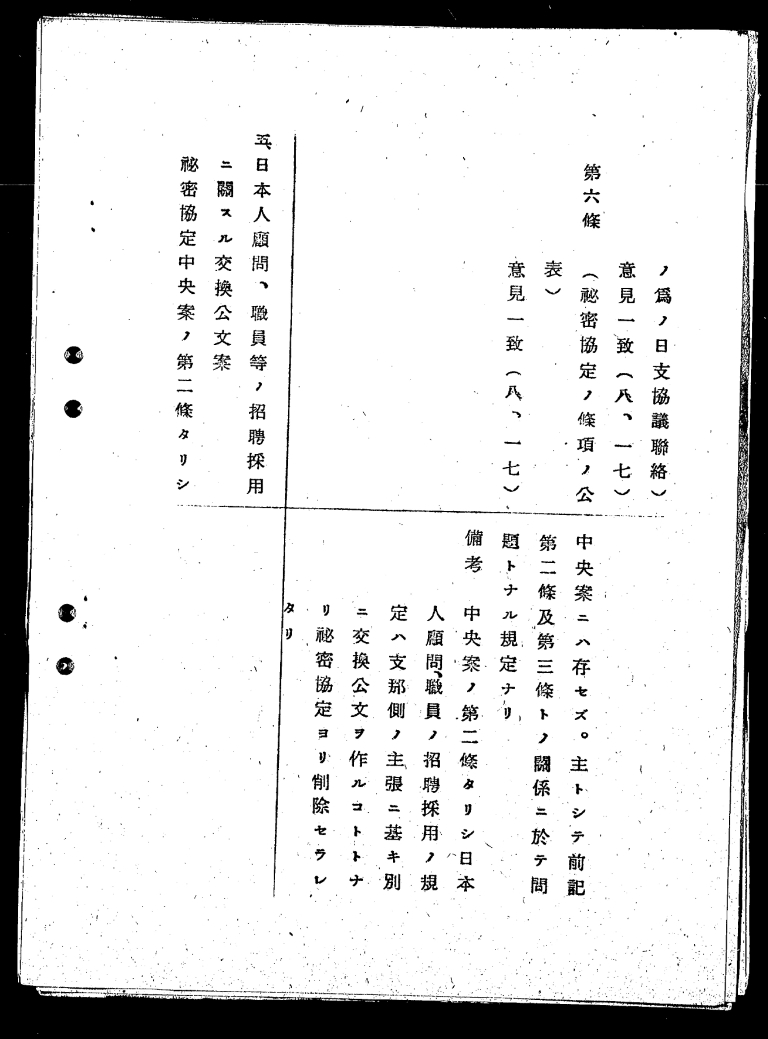 ノ爲ノ日支協議聯絡）
意見一致（八、一七）
第六條　（祕密協定ノ條項ノ公
表）
意見一致（八、一七）
中央案ニハ存セズ。主トシテ前記
第二條及第三條トノ關係ニ於テ問
題トナル規定ナリ
備考　中央案ノ第二條タリシ日本
人顧問、職員ノ招聘採用ノ規
定ハ支那側ノ主張ニ基キ別
ニ交換公文ヲ作ルコトトナ
リ祕密協定ヨリ削除セラレ
タリ
五、日本人顧問、職員等ノ招聘採用
ニ關スル交換公文案
祕密協定中央案ノ第二條タリシ